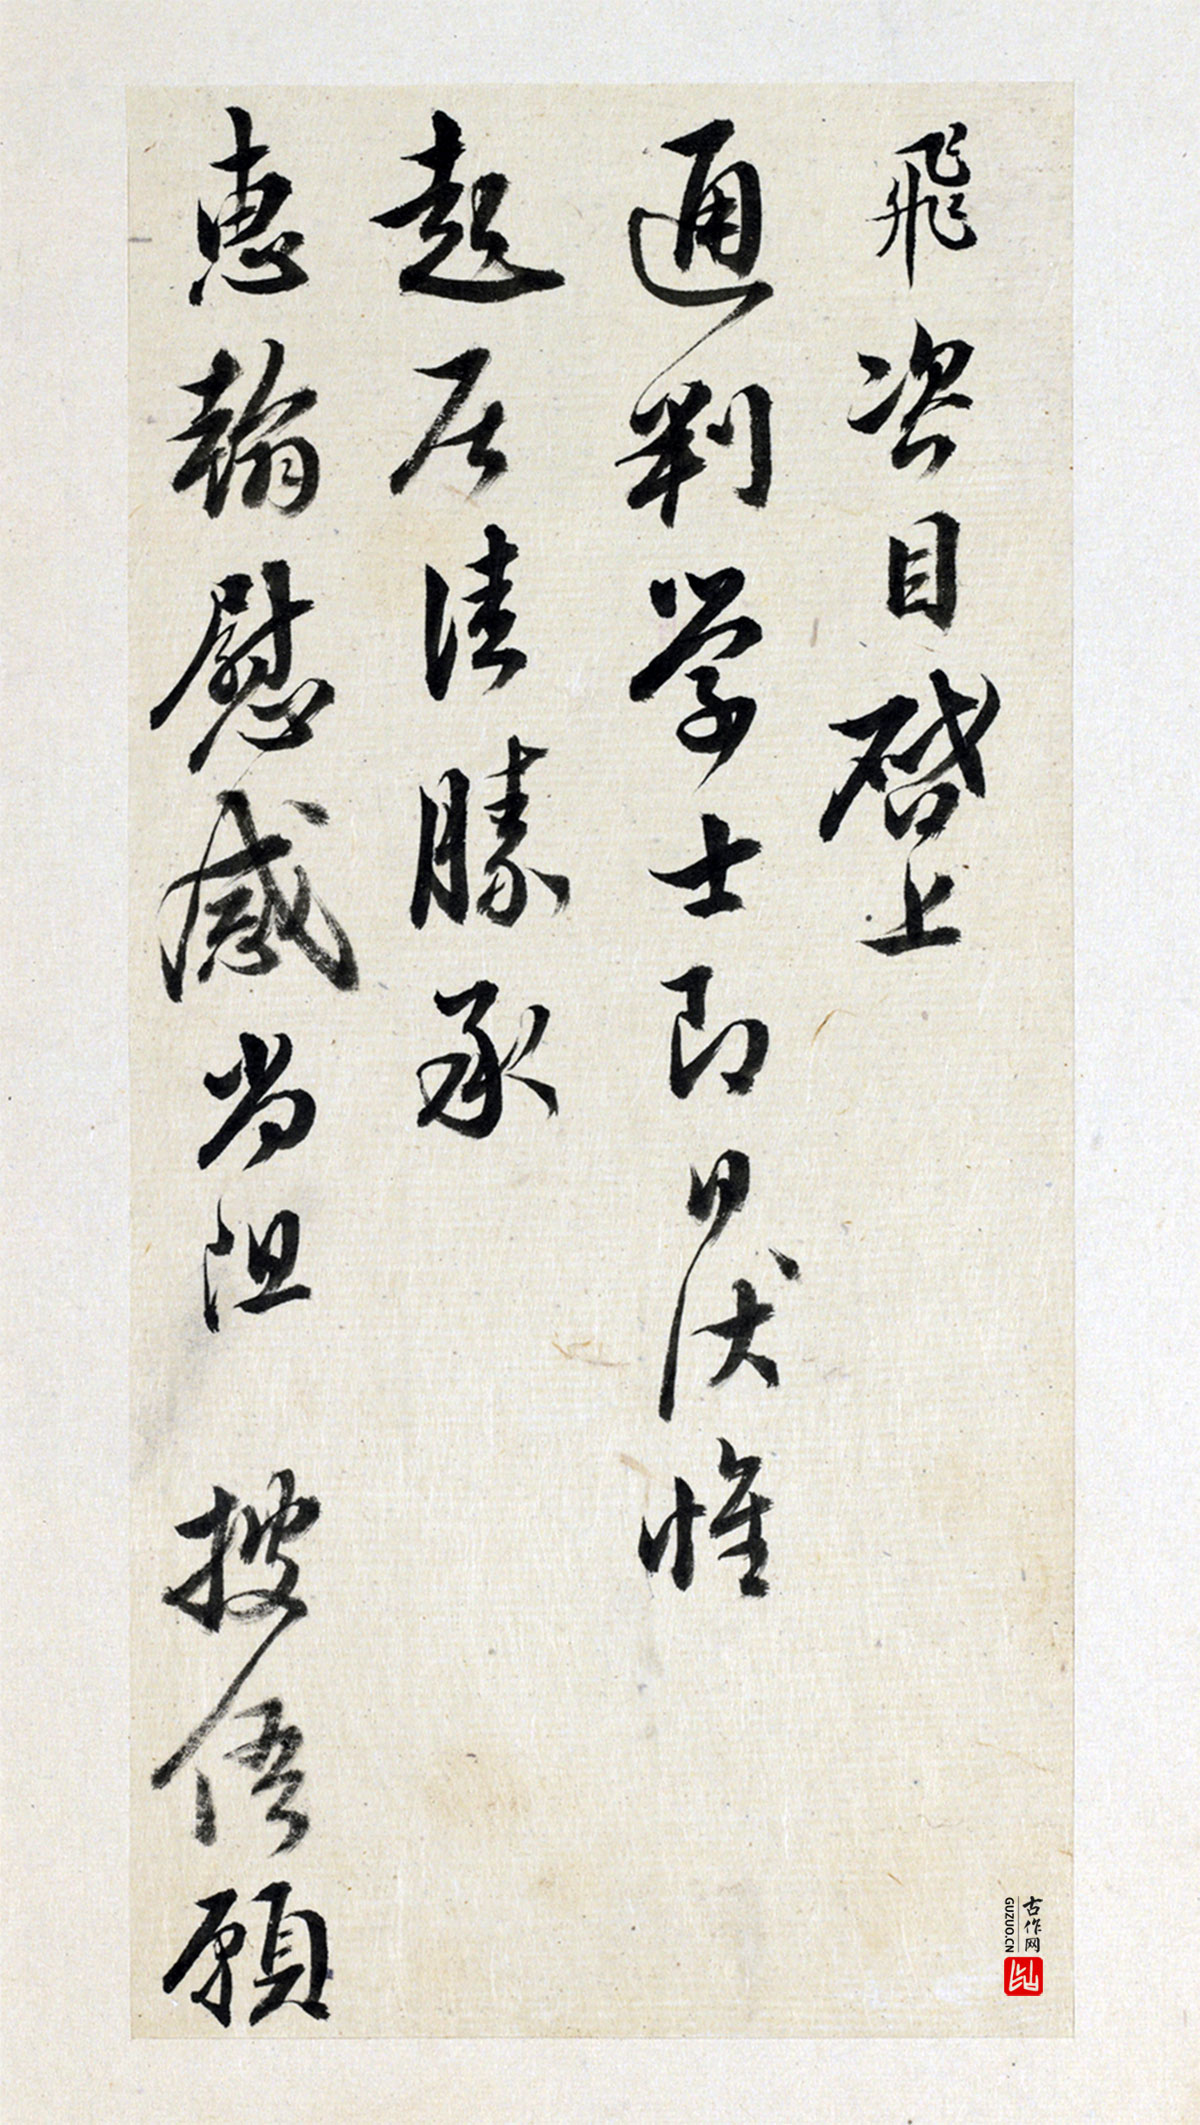 飛咨目啓上
通判學士即日伏惟
起居清勝承
惠翰慰感尚阻 披俉願
古作网
GUZUO.CN